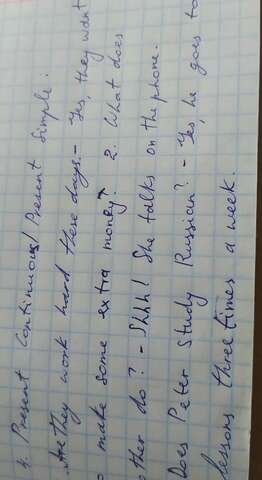 4. Present Continuous/Present Simple:
Are they work hard these days. - Yes, they want
make some extra money? 2. What does
other do? - Shhh! She talks on the phone.
Does Peter Study Russian? - Yes, he goes to
lessons three times a week.